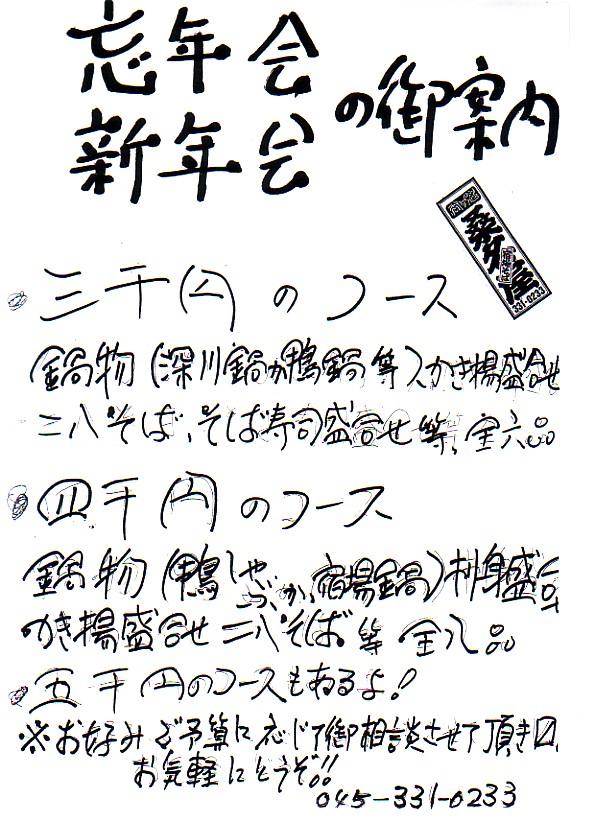 忘年会
新年会
の御案内
桑名屋
331-0233
三千円のコース
鍋物(深川鍋か鴨鍋等)、かき揚盛合せ
二八そば、そば寿司盛合せ等、全六品
四千円のコース
鍋物(鴨しゃぶか、宿場鍋)刺身盛合
かき揚盛合せ 二八そば。等 全八品
五千円のコースもあるよ!
※お好みご予算に応じて御相談させて頂き〼。
お気軽にどうぞ!!
045-331-0233